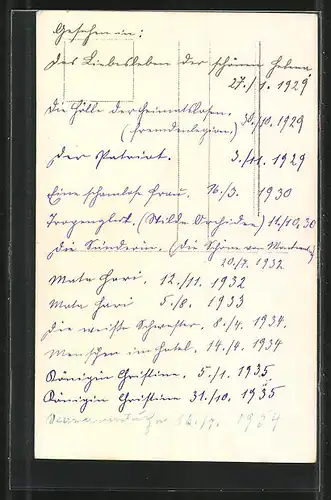 Gesehen in:
Das Liebesleben der schönen Helena.
27./1. 1929
Die Hölle der Heimatlosen.
(Fremdenlegion.) 30./10. 1929
Der Patriot. 3./11. 1929
Eine schamlose Frau. 16./3. 1930
Tropenglut. (Wilde Orchideen) 11./10. 30
Die Sünderin. (Die Schöne von
20./7. 1932
Mata Hari. 12./11. 1932
Mata Hari 5./8. 1933
Die weiße Schwester. 8./4. 1934.
Menschen im Hotel. 14./4. 1934
Königin Christine. 5./1. 1935
Königin Christine 31./10. 1935
1934